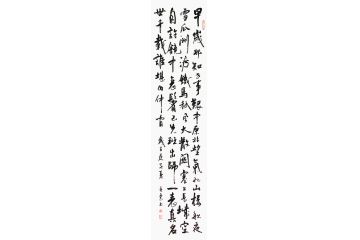 早歲那知世事艱中原北望氣如山樓船夜
雪瓜洲渡鐵馬秋風大散關塞上長城空
自許鏡中衰鬢已先斑出師一表真名
世千載誰堪伯仲間